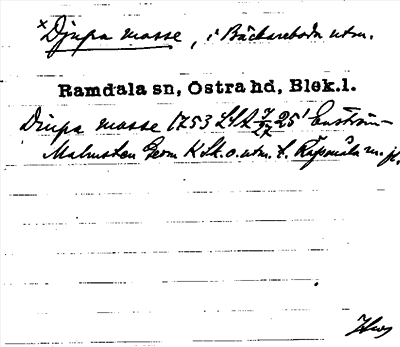 ×Djupa mosse, i Bäckareboda utm.
Ramdala sn, Östra hd, Blek.l.
Djupa mosse 1753 LSA 25¹ Enström-
Malmsten Geom K Sk. o. utm. t. m. fl.